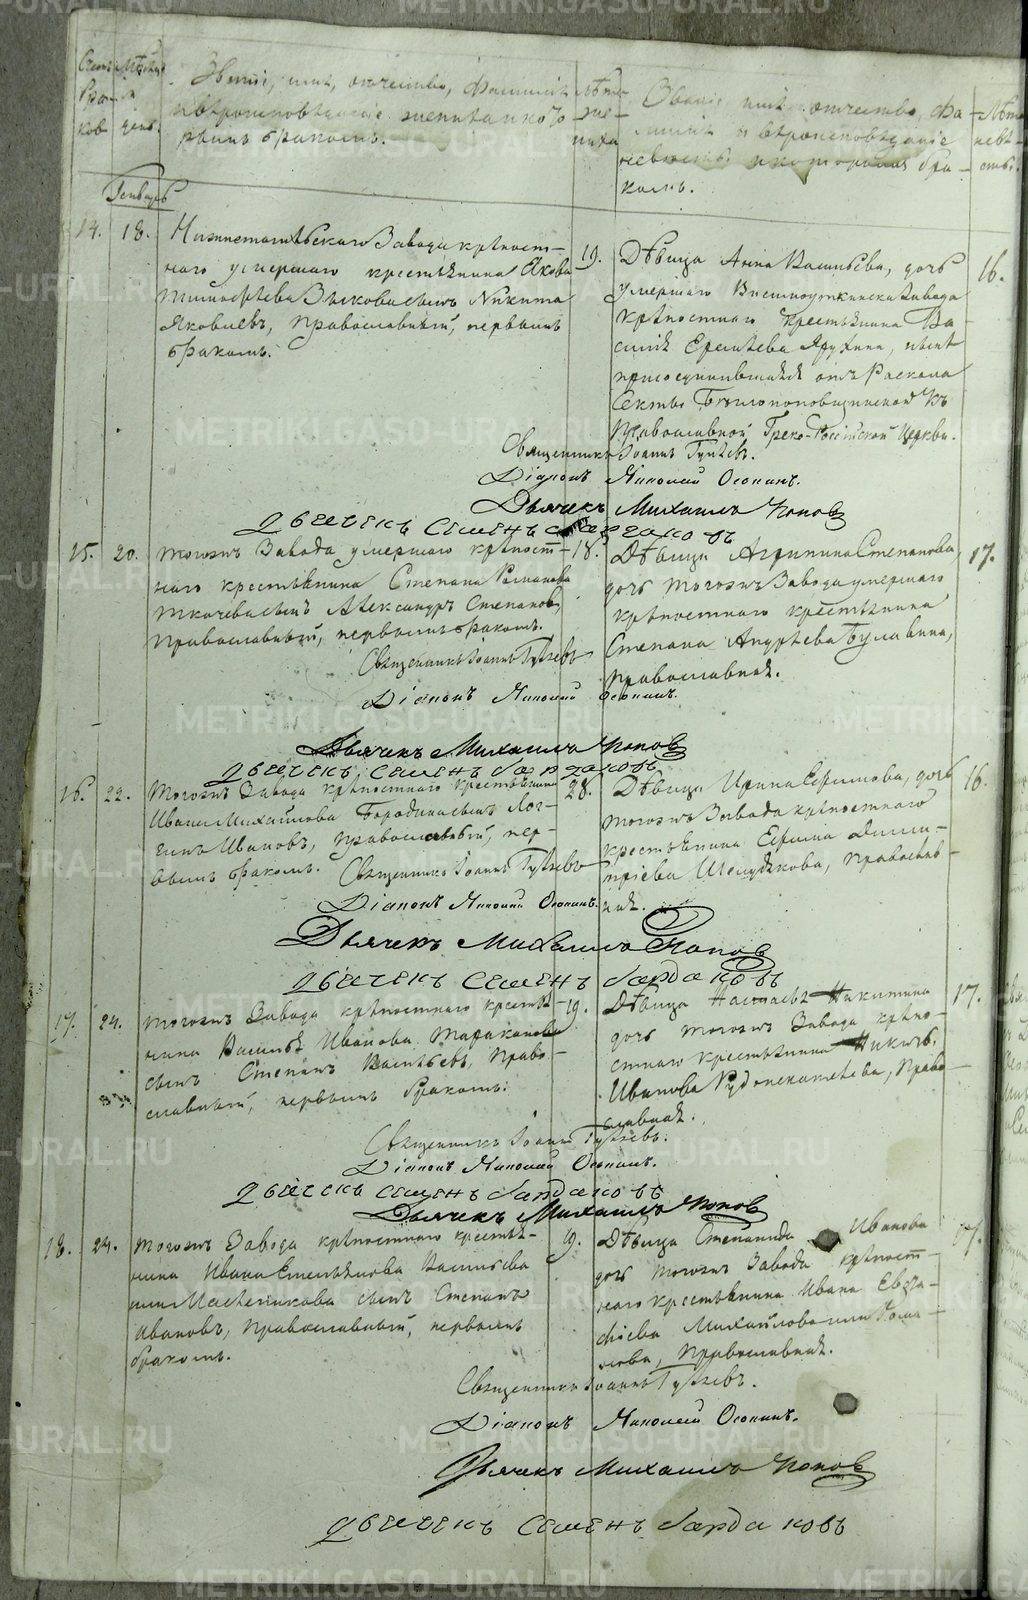 METRIKI.GASO-URAL.RU
Счетъ Браковъ
Мѣсяцъ и день.
Званіе, имя, отчество, фамилія
и вѣроисповѣданіе жениха и кото-
рымъ бракомъ.
Лѣта
же-
ниха
Званіе имя отчество, фа-
милія и вѣроисповѣданіе
невѣсты и которымъ бра-
комъ.
Лѣта
невѣ-
сты.
Генварь
14.
18.
Нижнетагильскаго Завода крѣпост-
наго умершаго крестьянина Якова
Тимофѣева Зыкова сынъ Никита
Яковлевъ, православный, первымъ
бракомъ.
19.
Дѣвица Анна Васильева, дочь
умершаго Висимоуткинска завода
крѣпостнаго крестьянина Ва-
силія Ермѣева
присоединившаяся отъ Раскола
Секты Бѣглопоповщинской къ
Православной Греко-Россійской Церкви.
16.
Священникъ Іоаннъ Гуляевъ.
Діаконъ Николай
Дьячекъ Михаилъ Поповъ
Дьячекъ Семенъ
15.
20.
Тогожъ Завода умершаго крѣпост-
наго крестьянина Степана Романова
Ткачева сынъ Александръ Степановъ,
Православный, первымъ бракомъ.
18.
Дѣвица Агрипина Степанова,
дочь тогожъ Завода умершаго
крѣпостнаго крестьянина
Степана Андрѣева Булавина,
православная.
17.
Священникъ Іоаннъ Гуляевъ
Діаконъ Николай
Дьячекъ Михаилъ Поповъ
Дьячекъ Семенъ Бардаковъ
16.
22.
Тогожъ Завода крѣпостнаго крестьянина
Ивана Михайлова Бородина сынъ Лог-
гинъ Ивановъ, Православный, пер-
вымъ бракомъ.
28.
Дѣвица Ирина Ефимова, дочь
тогожъ Завода крѣпостнаго
крестьянина Ефима Дими-
тріева Шелудякова, Православ-
ная.
16.
Священникъ Іоаннъ Гуляевъ
Діаконъ Николай
Дьячекъ Михаилъ Поповъ
Дьячекъ Семенъ Бардаковъ
17.
24.
Тогожъ Завода крѣпостнаго крестья-
нина Василья Иванова Тараканова
сынъ Степанъ Васильевъ, Право-
славный, первымъ бракомъ.
19.
Дѣвица Никитина
дочь тогожъ Завода крѣпо-
стнаго крестьянина Никиты
Иванова Рудопекатѣева, Право-
славная.
17.
Священникъ Іоаннъ Гуляевъ.
Діаконъ Николай
Дьячекъ Семенъ Бардаковъ
Дьячекъ Михаилъ Поповъ
18.
24.
Тогожъ Завода крѣпостнаго крестья-
нина Ивана Емельянова Васильева
или Масленикова сынъ Степанъ
Ивановъ, Православный, первымъ
бракомъ.
19.
Дѣвица Степанида Иванова
дочь тогожъ Завода крѣпост-
наго крестьянина Ивана Евдо-
кіева Михайлова или
Православная.
17.
Священникъ Іоаннъ Гуляевъ.
Діаконъ Николай
Дьячекъ Михаилъ Поповъ
Дьячекъ Семенъ Бардаковъ